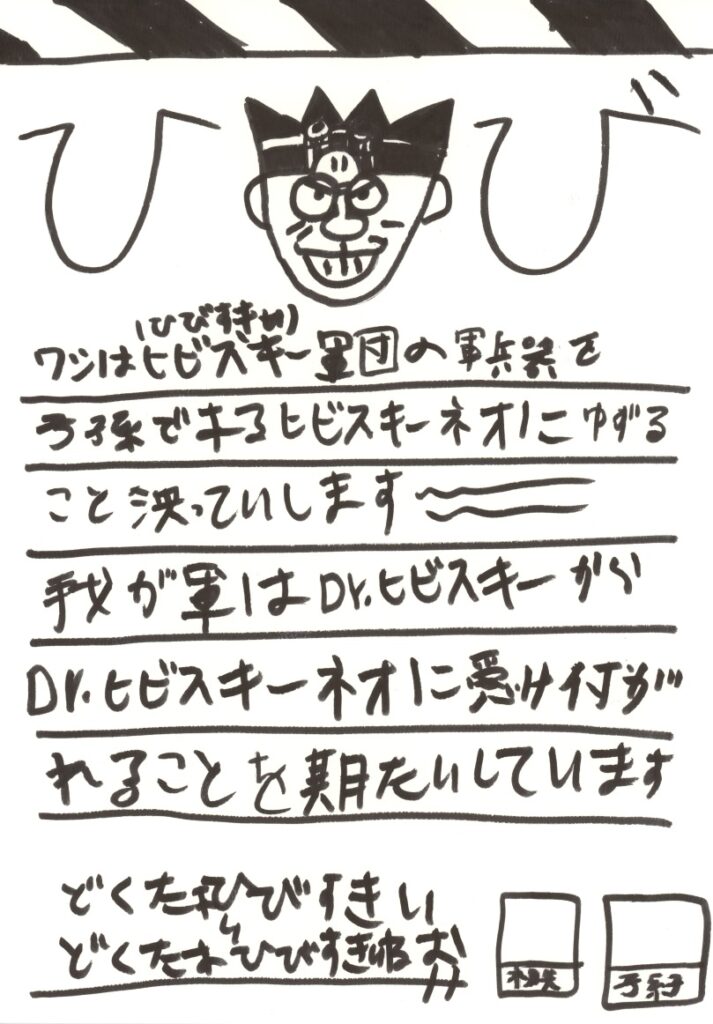 ひび
(ひびすきい)
ワシはヒビスキー軍団の軍兵器を
子孫でキるヒビスキーネオにゆずる
こと決っていします
我が軍はDr.ヒビスキーから
Dr.ヒビスキーネオに受け付が
れることを期たいしています
どくたぁひびすきい
どくたあひびすき
子孫